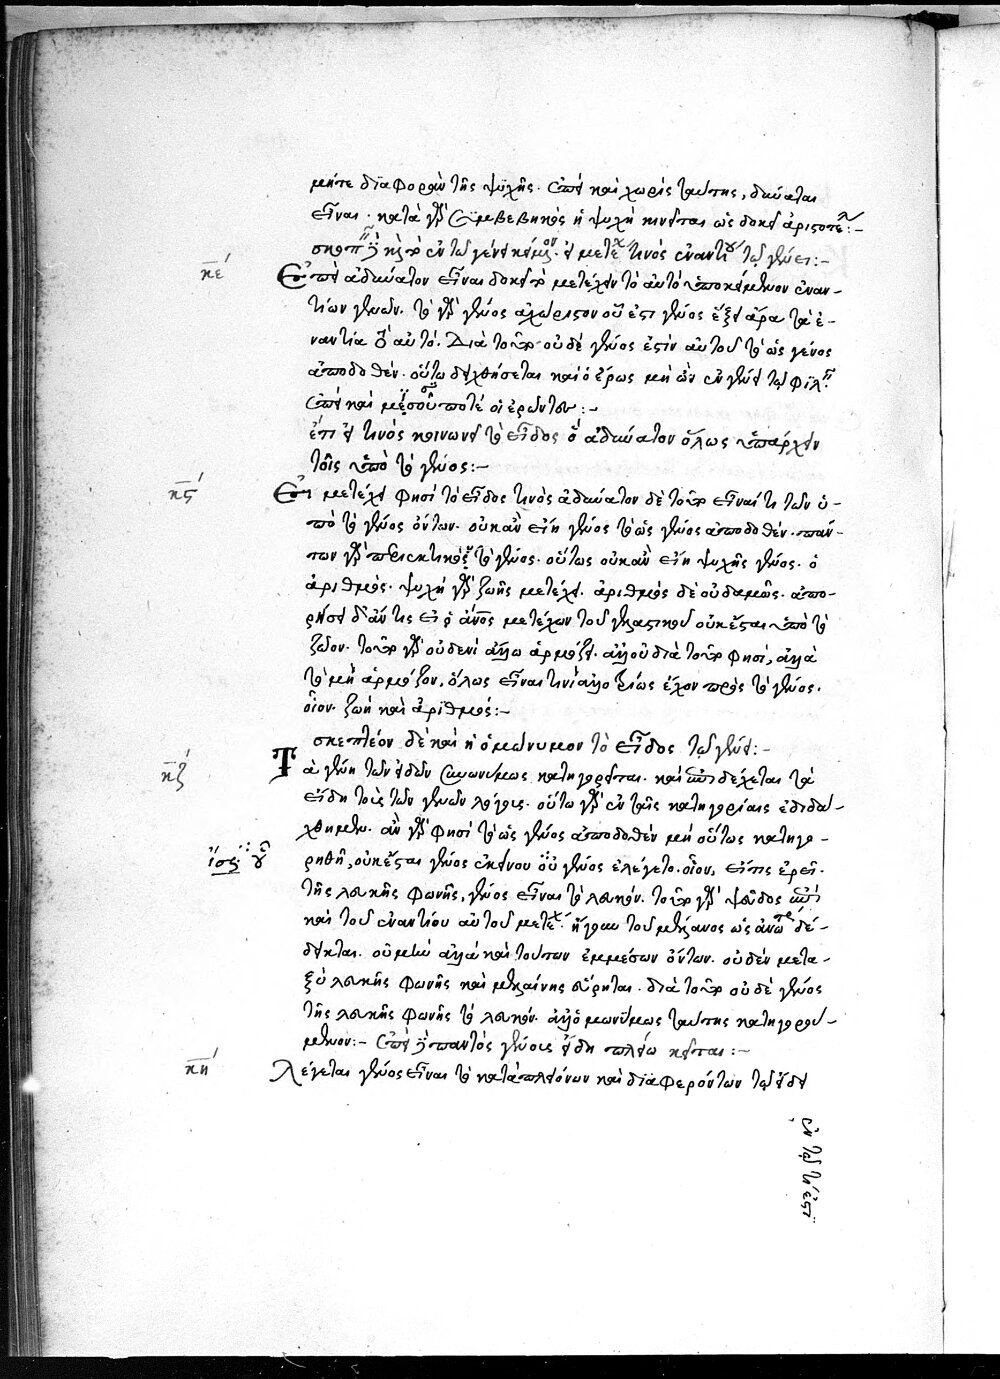 μήτε διαφορὰν τῆς ψυχῆς. ἐπεὶ καὶ χωρὶς ταύτης, δύναται
εἶναι. κατὰ γὰρ συμβεβηκὸς ἡ ψυχὴ κινεῖται ὡς δοκεῖ ἀριστοτέλ:-
σκοπ καὶ τὸ ἐν τῷ γένει κείμενον. εἰ μετέχ τινὸς ἐναντίου τῷ γένει:-
κε´
Ἐπεὶ ἀδύνατον εἶναι δοκεῖ τὸ μετέχειν τὸ αὐτὸ ὑποκείμενον ἐναν-
τίων γενῶν. τὸ γὰρ γένος ἀχώριστον οὗ ἐστι γένος ἕξει ἄρα τὰ ἐ-
ναντία τὸ αὐτό. Διὰ τοῦτο οὐδὲ γένος ἐστὶν αὐτοῦ τὸ ὡς γένος
ἀποδοθέν. οὕτω δειχθήσεται καὶ ὁ ἔρως μὴ ὢν ἐν γένει τῷ φιλ
ἐπεὶ καὶ μισοῦσί ποτε οἱ ἐρῶντες:-
ἔτι εἰ τινὸς κοινωνεῖ τὸ εἶδος ὃ ἀδύνατον ὅλως ὑπάρχειν
τοῖς ὑπὸ τὸ γένος:-
κς´
Εἰ μετέχει φησὶ τὸ εἶδος τινὸς ἀδύνατον δὲ τοῦτο εἶναί τι τῶν ὑ-
πὸ τὸ γένος ὄντων. οὐκ ἂν εἴη γένος τὸ ὡς γένος ἀποδοθέν. πάν-
των γὰρ περιεκτικὸν τὸ γένος. οὕτως οὐκ ἂν εἴη ψυχῆς γένος. ὁ
ἀριθμός. ψυχὴ γὰρ ζωῆς μετέχει. ἀριθμὸς δὲ οὐδαμῶς. ἀπο-
ρήσει δ' ἄν τις εἰ ὁ ἄνος μετέχων τοῦ γελαστικοῦ οὐκ ἔσται ὑπὸ τὸ
ζῶον. τοῦτο γὰρ οὐδενὶ ἄλλω ἁρμόζει. ἀλλ' οὐ διὰ τοῦτο φησί, ἀλλὰ
τὸ μὴ ἁρμόζον, ὅλως εἶναι τινὶ ἀλλοτρίως ἔχον πρὸς τὸ γένος.
οἷον. ζωὴ καὶ ἀριθμός:-
σκεπτέον δὲ καὶ εἰ ὁμώνυμον τὸ εἶδος τῷ γένει:-
κζ´
Τὰ γένη τῶν εἰδῶν συνωνύμως κατηγορεῖται. καὶ ἐπιδέχεται τὰ
εἴδη τοὺς τῶν γενῶν λόγους. οὕτω γὰρ ἐν ταῖς κατηγορίαις ἐδιδά-
χθημεν. ἂν γὰρ φησὶ τὸ ὡς γένος ἀποδοθὲν μὴ οὕτως κατηγο-
ρηθῆ, οὐκ ἔσται γένος ἐκείνου οὗ γένος ἐλέγετο. οἷον, εἴ τις ἐρεῖ.
τῆς λευκῆς φωνῆς, γένος εἶναι τὸ λευκόν. τοῦτο γὰρ ψεῦδος ἐπεὶ
καὶ τοῦ ἐναντίου αὐτοῦ μετέχ ἤγουν τοῦ μέλανος ὡς ἄνω δέ-
δεικται. οὐ μόνον ἀλλὰ καὶ τούτων ἐμμέσων ὄντων. οὐδὲν μετα-
ξὺ λευκῆς φωνῆς καὶ μελαίνης εὕρηται. διὰ τοῦτο οὐδὲ γένος
τῆς λευκῆς φωνῆς τὸ λευκόν. ἀλλ' ὁμωνύμως ταύτης κατηγορού-
μενον:- ἐπεὶ παντὸς γένους εἴδη πλείω κεῖται:-
κη´
Λέγεται γένος εἶναι τὸ κατὰ πλειόνων καὶ διαφερόντων τῷ εἴδει
ἐν τῷ τί ἐστι